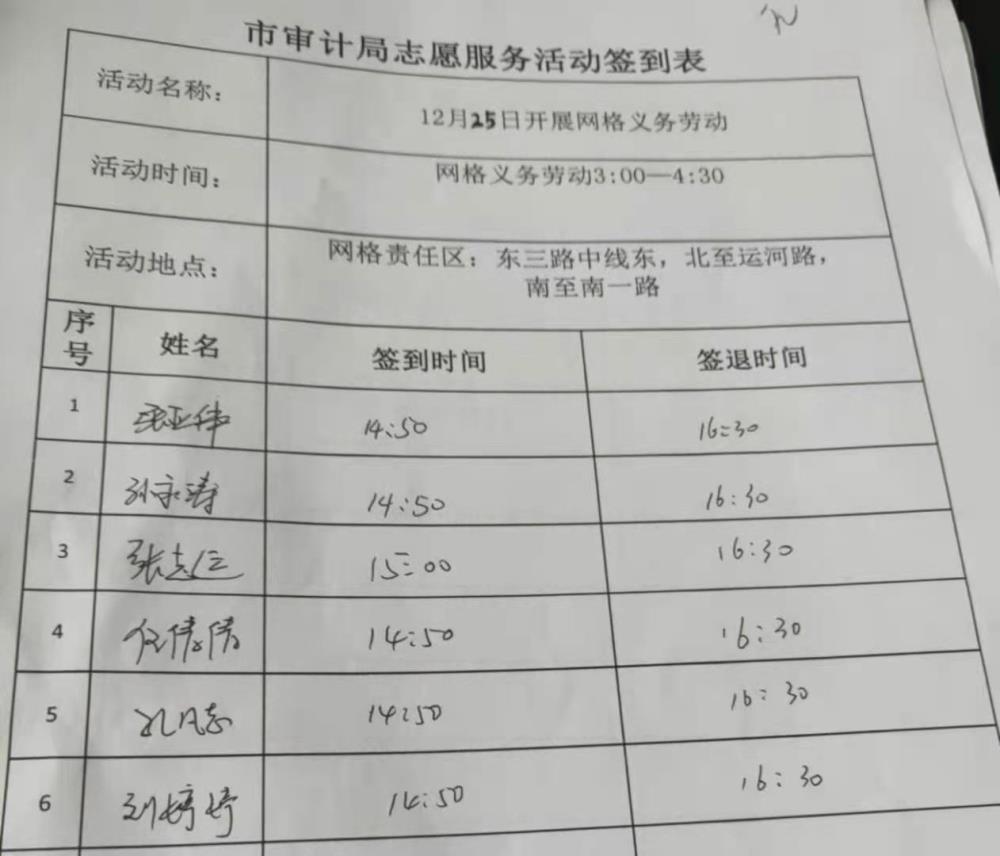 市审计局志愿服务活动签到表
活动名称： 12月25日开展网格义务劳动
活动时间： 网格义务劳动3:00—4:30
活动地点： 网格责任区：东三路中线东，北至运河路，
南至南一路
序号 姓名 签到时间 签退时间
1 张亚伟 14:50 16:30
2 孙永涛 14:50 16:30
3 张志仁 15:00 16:30
4 任倩倩 14:50 16:30
5 14:50 16:30
6 刘婷婷 14:50 16:30